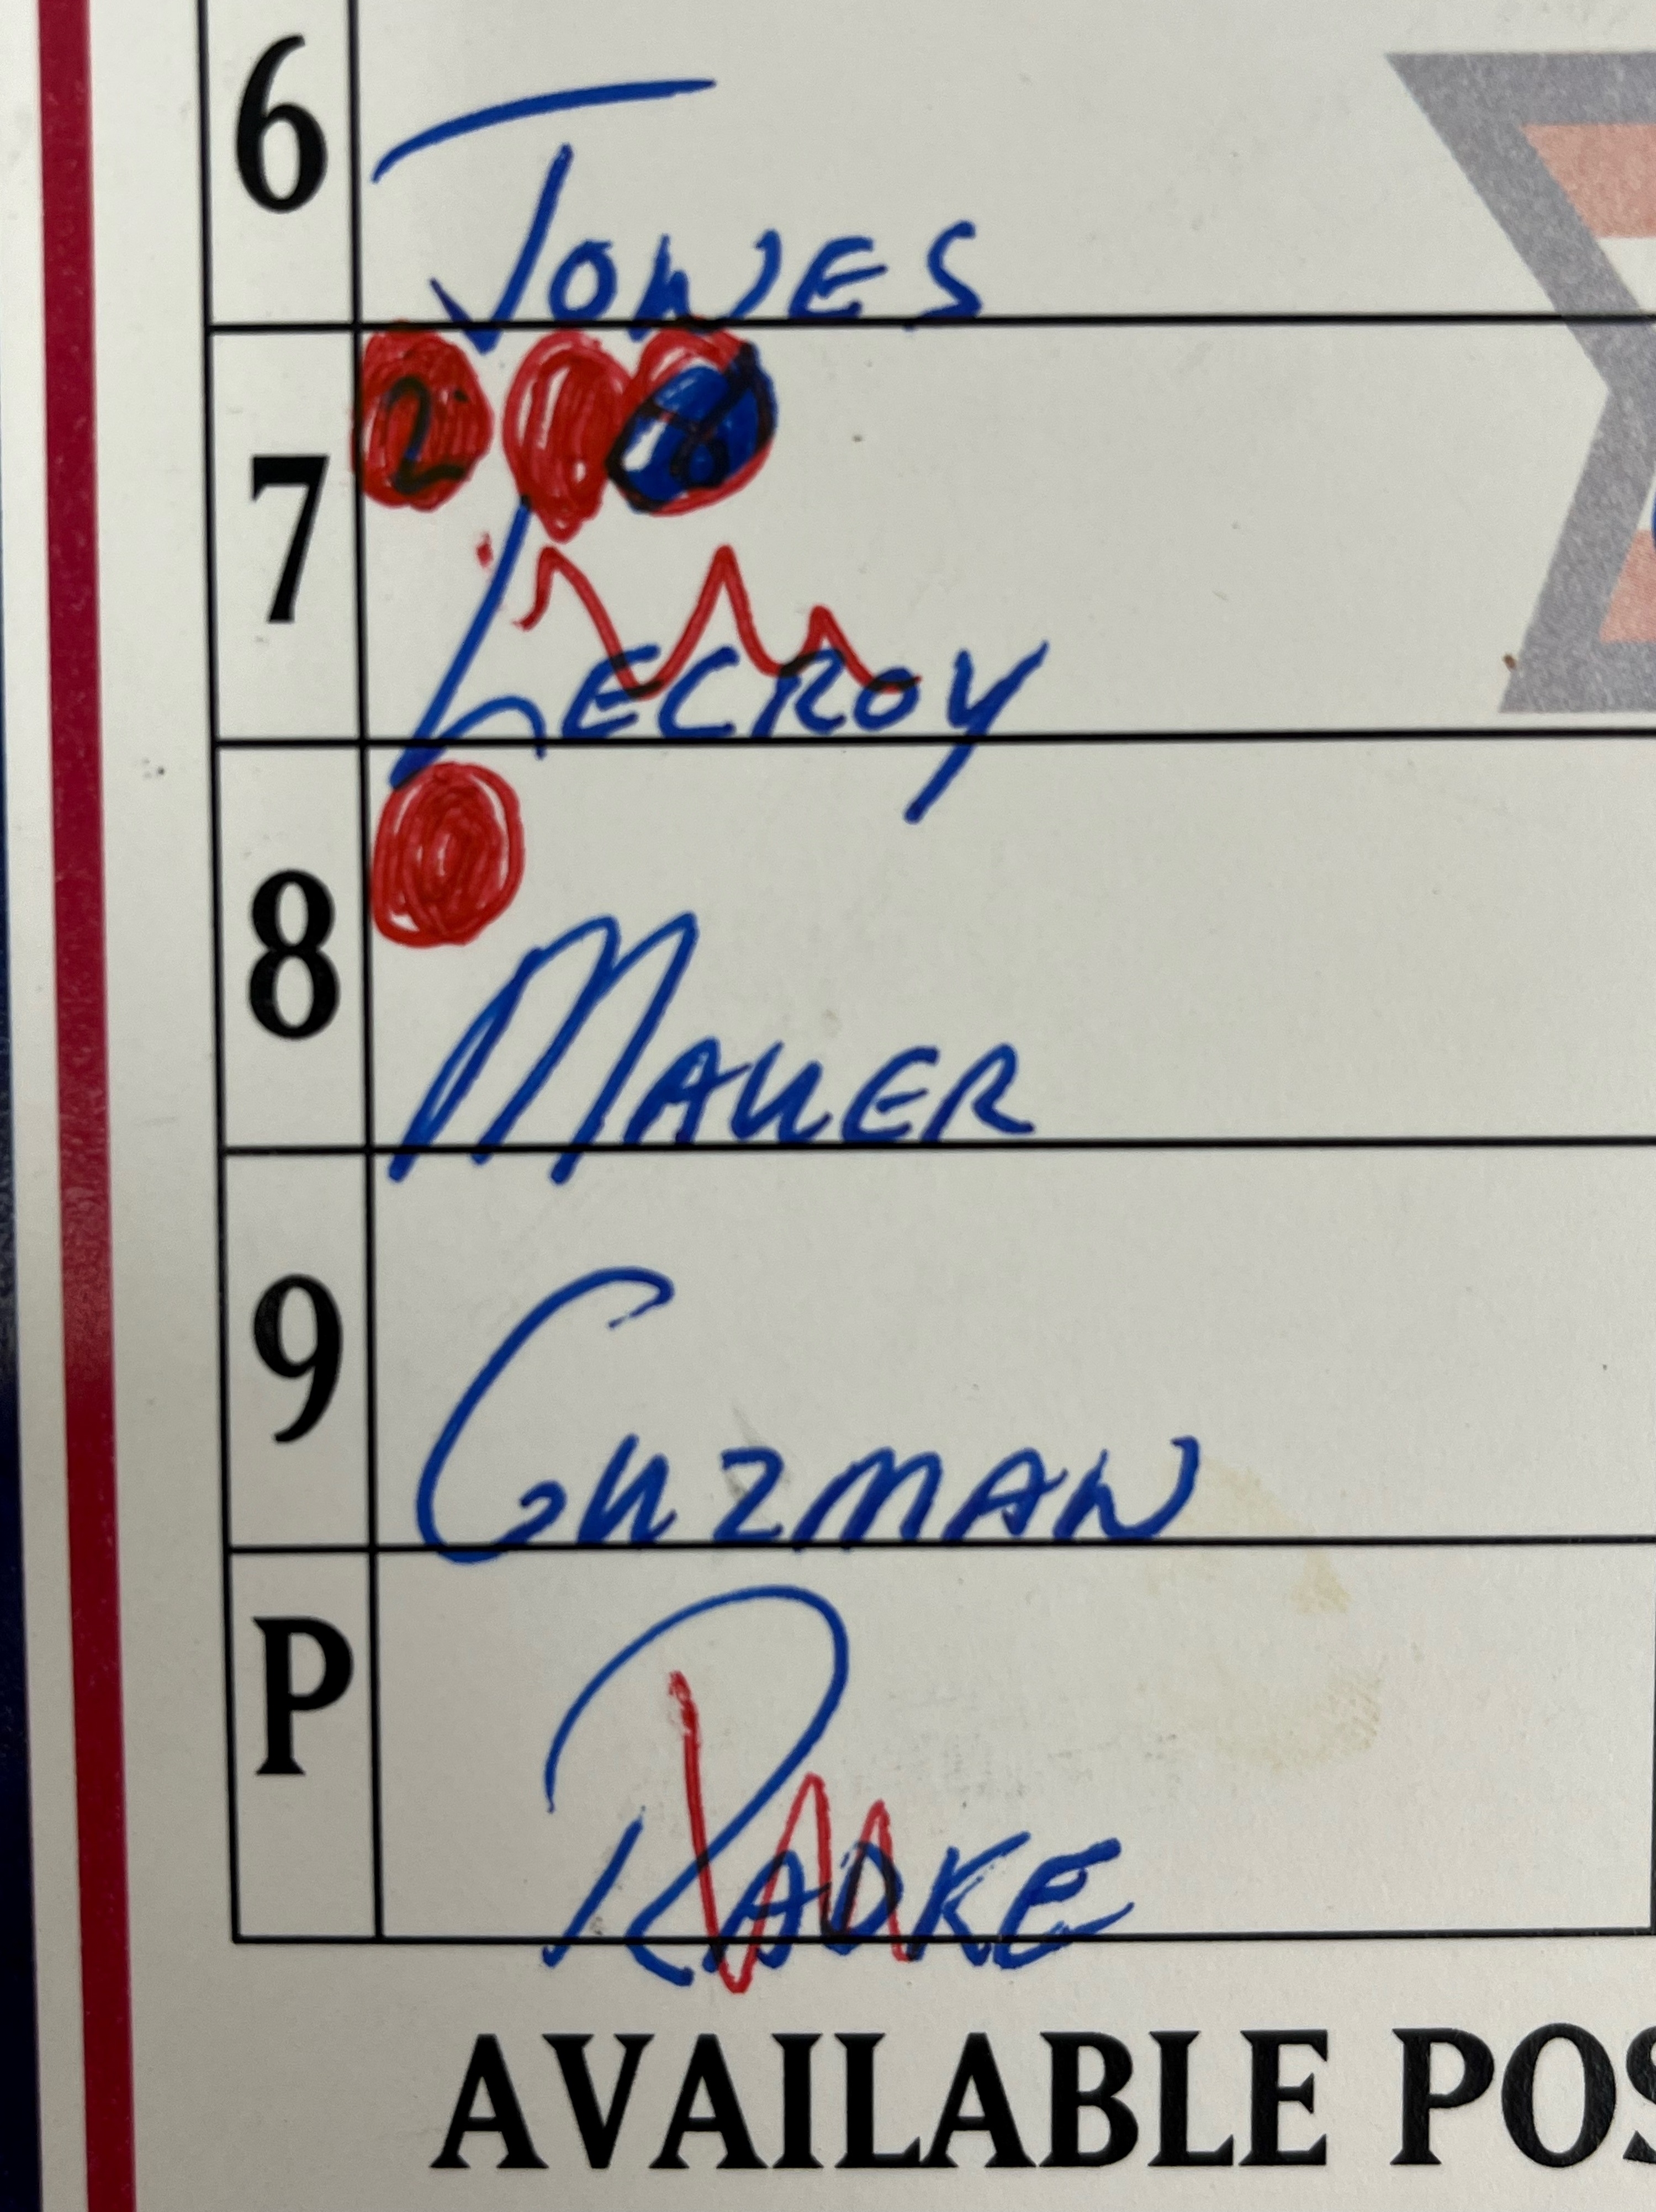 6 JONES
2 8
7 LECROY
8 MAUER
9 GUZMAN
P RADKE
AVAILABLE POS